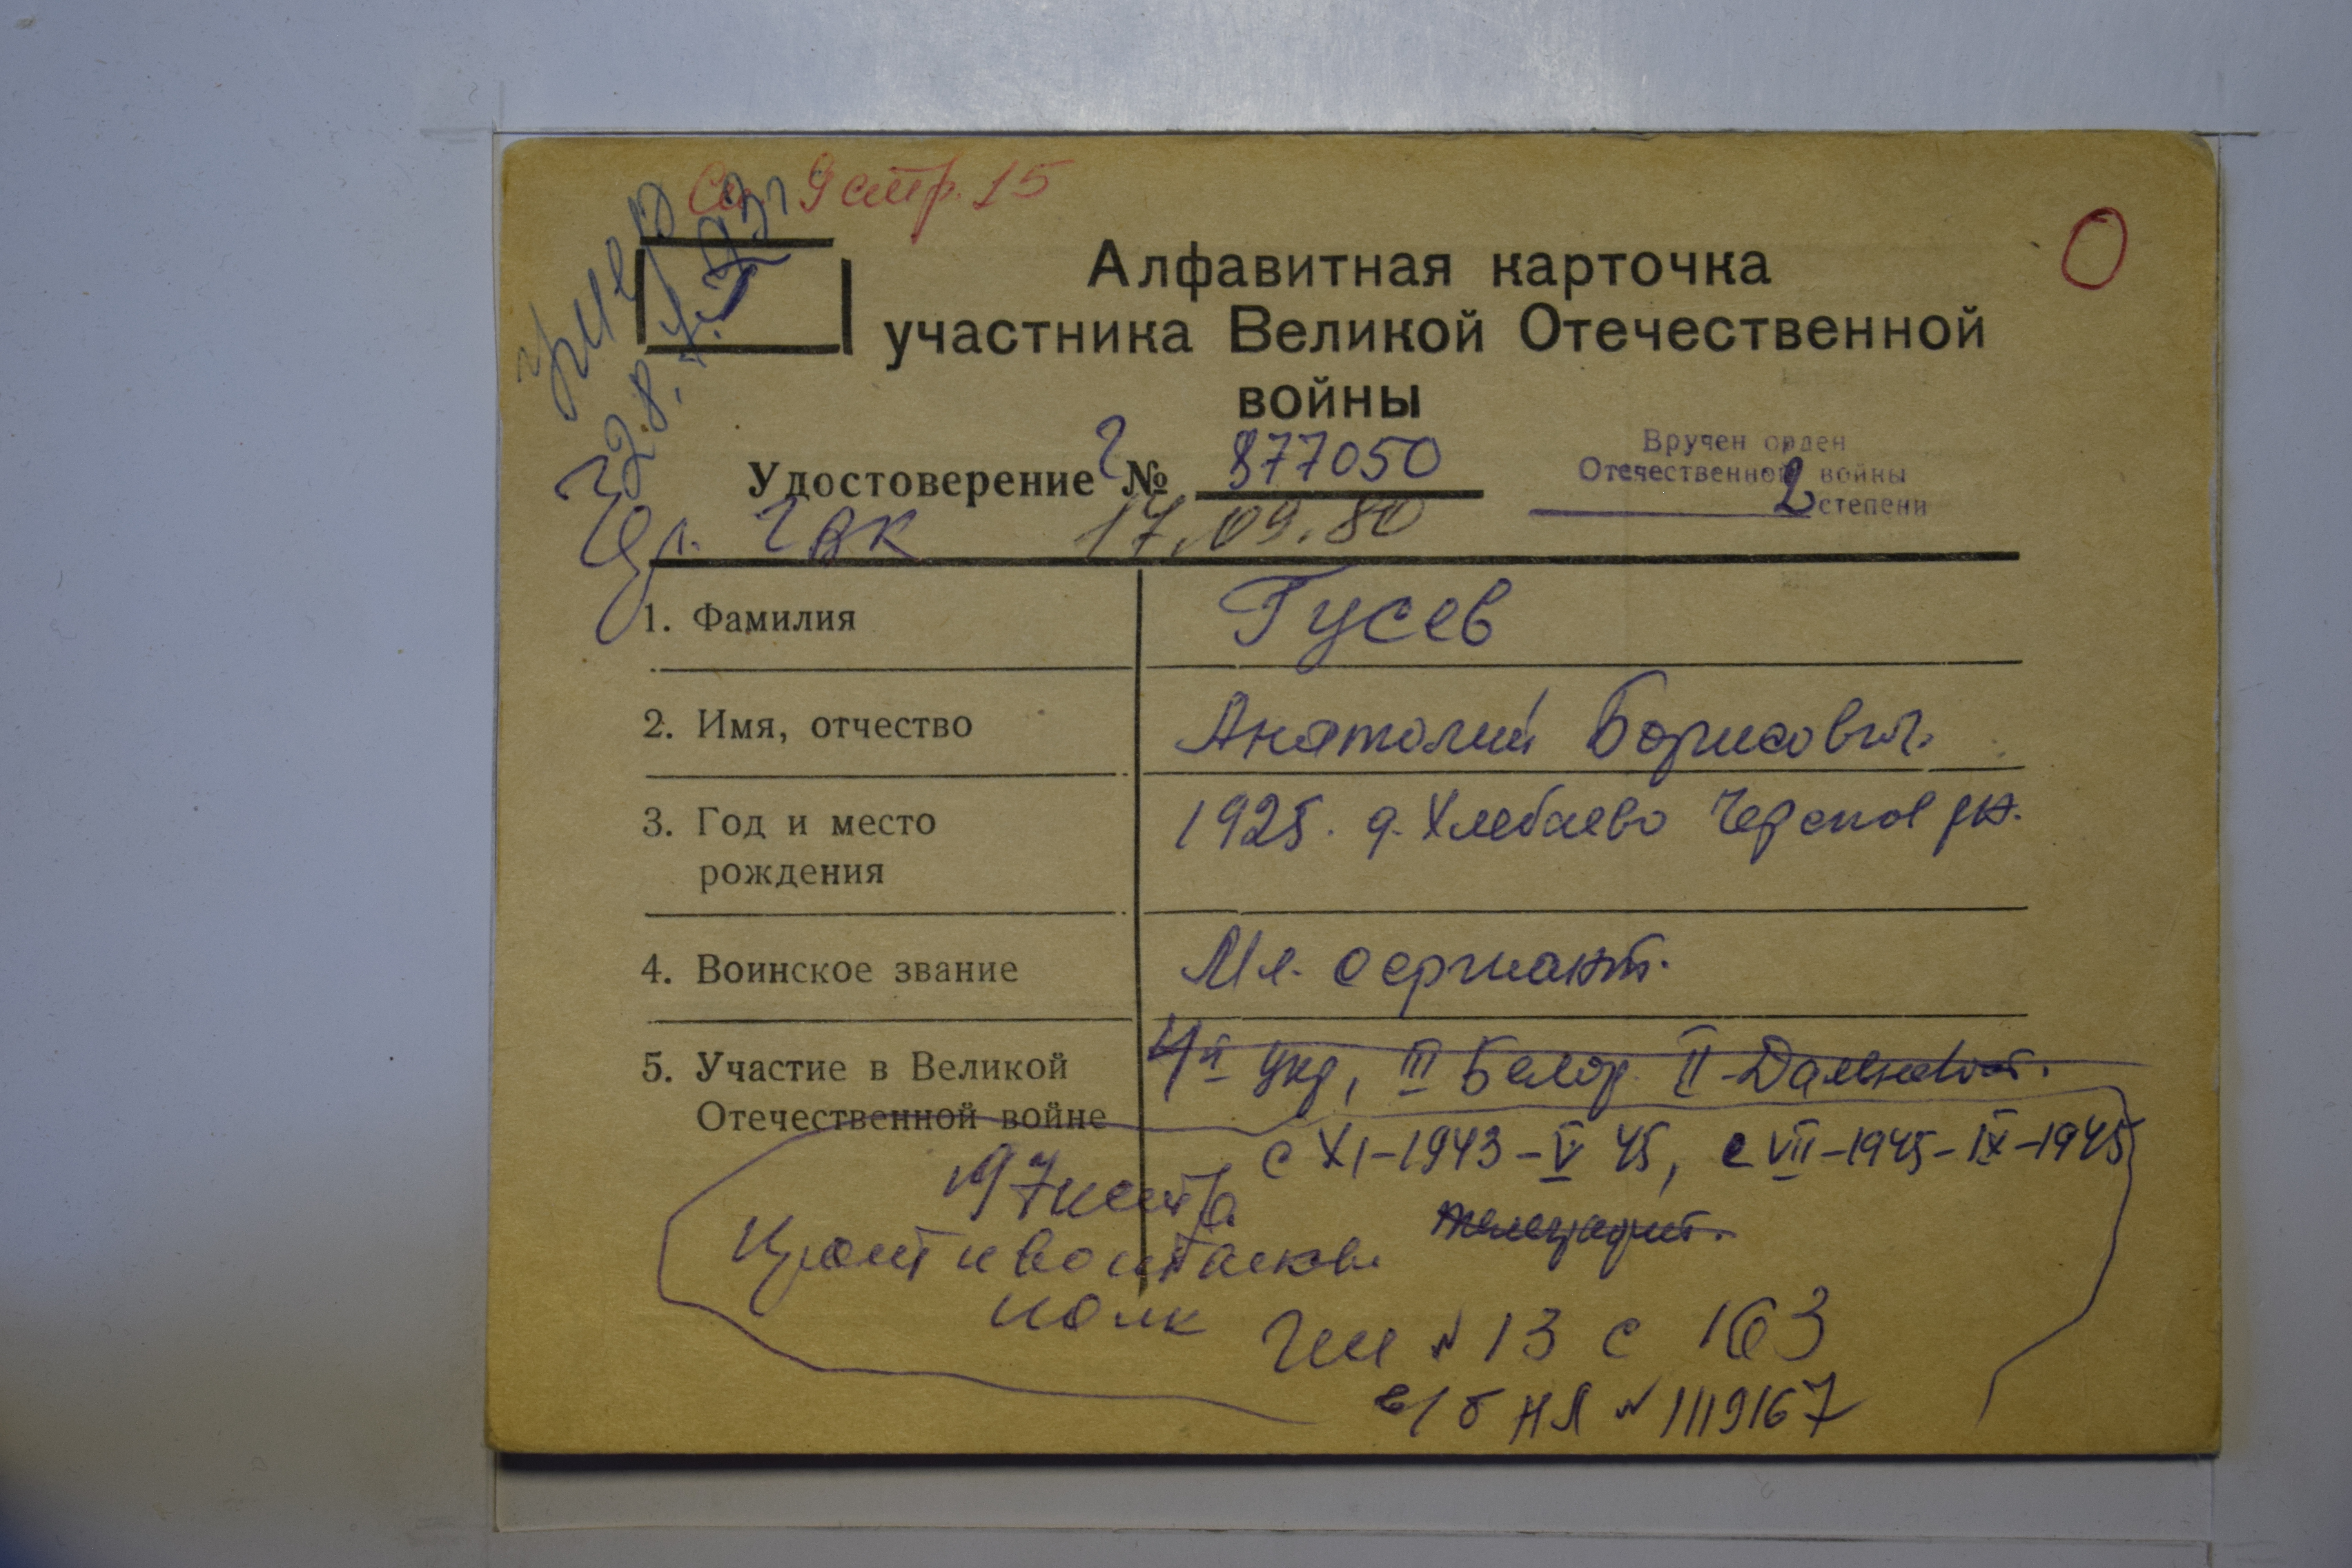 Сп. 9 стр. 15
О
Алфавитная карточка
участника Великой Отечественной
войны
28.
Удостоверение Г № 877050
Вручен орден
Отечественной войны
2 степени
17.09.80
1. Фамилия Гусев
2. Имя, отчество Анатолий Борисович
3. Год и место рождения 1925. д. Хлебаево Черепов рн.
4. Воинское звание Мл. сержант.
5. Участие в Великой Отечественной войне 4й укр, III Белор II-Дальневост.
с XI-1943-V 45, с VII-1945-IX-1945
197
противотанков.
полк
телеграфист.
№ 13 с 163
в/б НЛ № 1119167